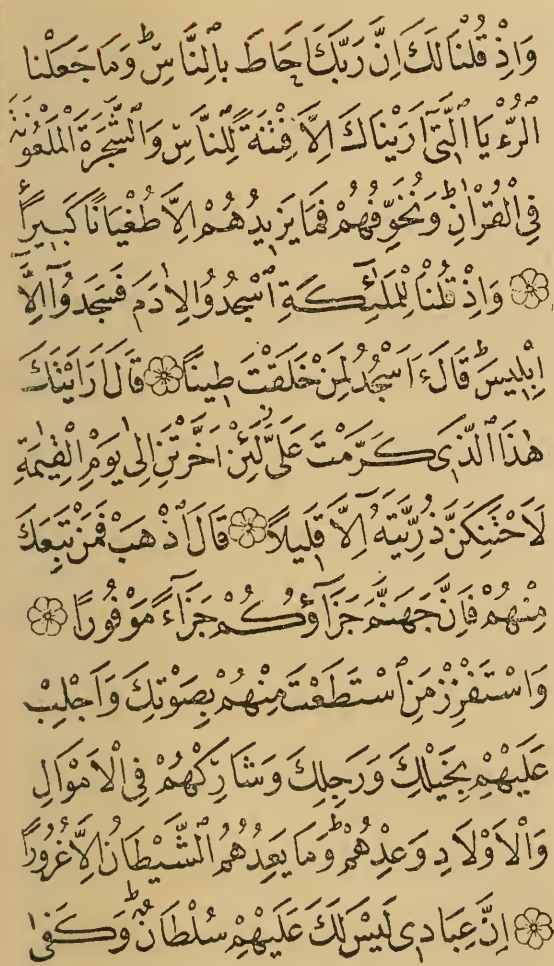 وَاِذْ قُلْنَا لَكَ اِنَّ رَبَّكَ اَحَاطَ بِالنَّاسِ ۜ وَمَا جَعَلْنَا
الرُّءْيَا الَّتٖٓى اَرَيْنَاكَ اِلَّا فِتْنَةً لِلنَّاسِ وَالشَّجَرَةَ الْمَلْعُونَةَ
فِى الْقُرْاٰنِ ۜ وَنُخَوِّفُهُمْ فَمَا يَزٖيدُهُمْ اِلَّا طُغْيَانًا كَبٖيرًا
۝ وَاِذْ قُلْنَا لِلْمَلٰٓئِكَةِ اسْجُدُوا لِاٰدَمَ فَسَجَدُٓوا اِلَّٓا
اِبْلٖيسَ ۜ قَالَ ءَاَسْجُدُ لِمَنْ خَلَقْتَ طٖينًا ۝ قَالَ اَرَاَيْتَكَ
هٰذَا الَّذٖى كَرَّمْتَ عَلَىَّ لَئِنْ اَخَّرْتَنِ اِلٰى يَوْمِ الْقِيٰمَةِ
لَاَحْتَنِكَنَّ ذُرِّيَّتَهُٓ اِلَّا قَلٖيلًا ۝ قَالَ اذْهَبْ فَمَنْ تَبِعَكَ
مِنْهُمْ فَاِنَّ جَهَنَّمَ جَزَٓاؤُكُمْ جَزَٓاءً مَوْفُورًا ۝
وَاسْتَفْزِزْ مَنِ اسْتَطَعْتَ مِنْهُمْ بِصَوْتِكَ وَاَجْلِبْ
عَلَيْهِمْ بِخَيْلِكَ وَرَجِلِكَ وَشَارِكْهُمْ فِى الْاَمْوَالِ
وَالْاَوْلَادِ وَعِدْهُمْ ۜ وَمَا يَعِدُهُمُ الشَّيْطَانُ اِلَّا غُرُورًا
۝ اِنَّ عِبَادٖى لَيْسَ لَكَ عَلَيْهِمْ سُلْطَانٌ ۜ وَكَفٰى